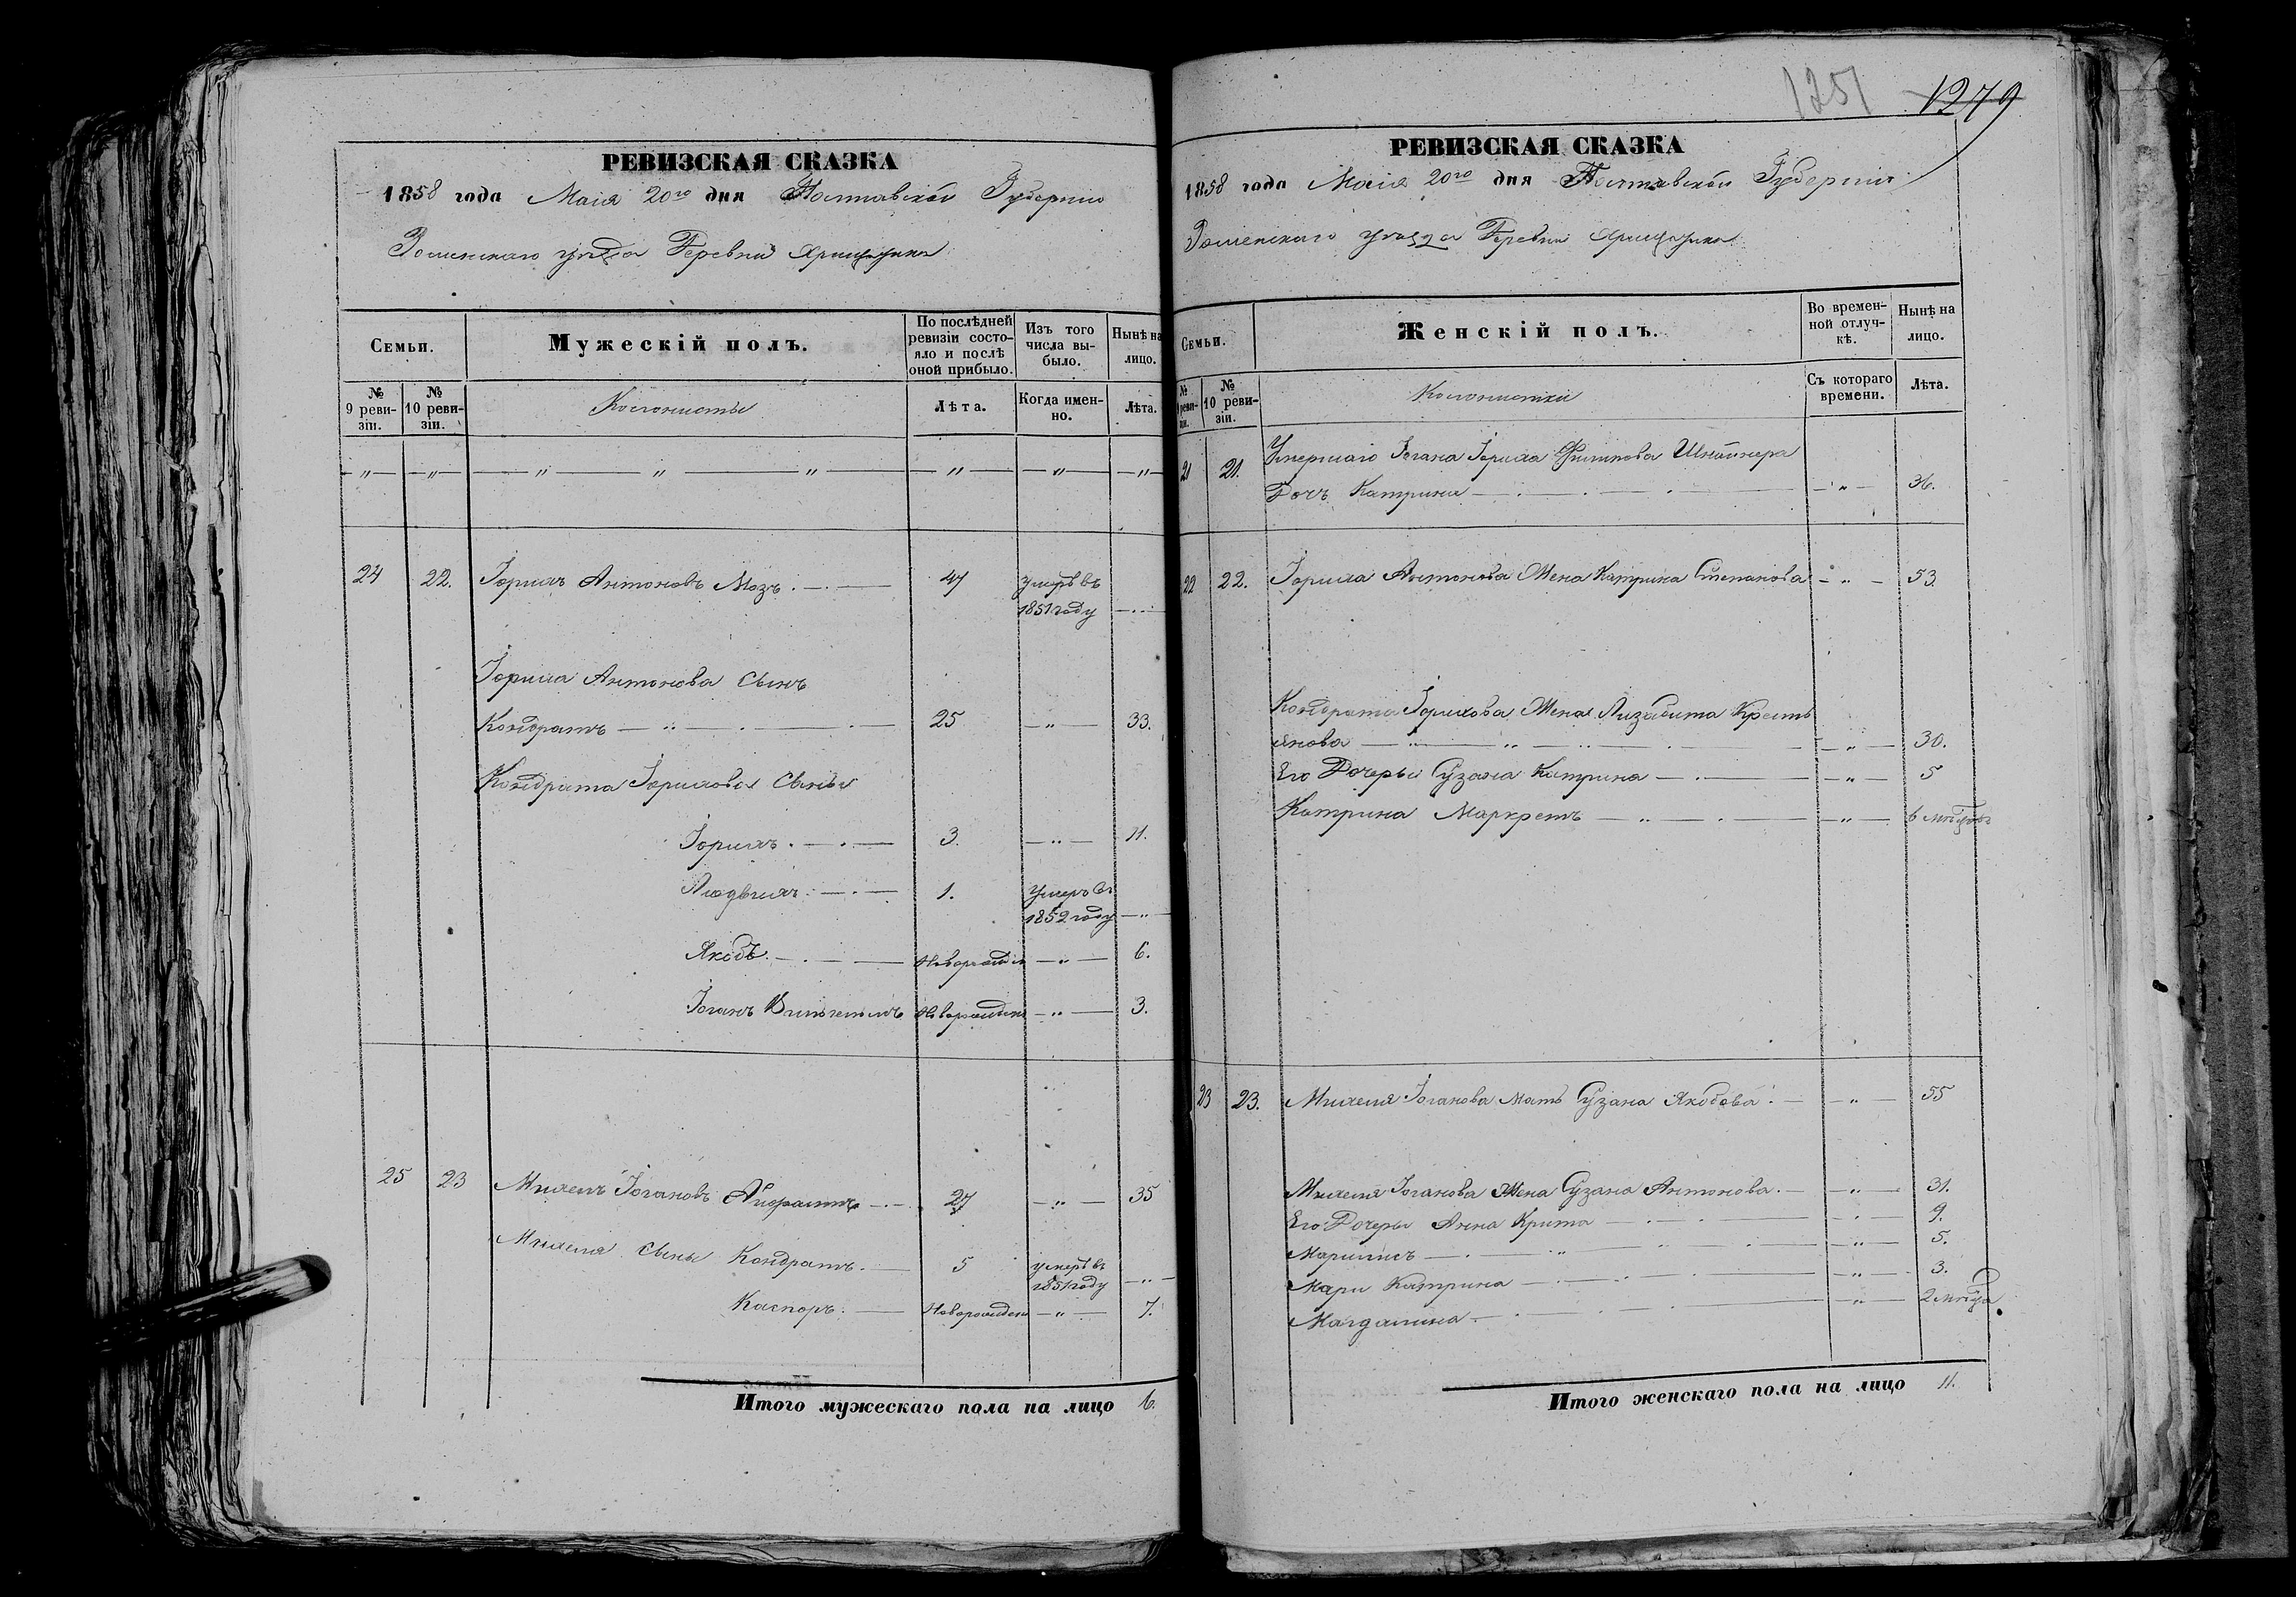 1251 1279
РЕВИЗСКАЯ СКАЗКА
1858 года Маія 20го дня Полтавской Губерніи
Роменскаго уѣзда Деревни
Семьи.
Мужескій полъ.
По послѣдней ревизіи состояло и послѣ оной прибыло.
Изъ того числа выбыло.
Нынѣ на лицо.
№ 9 ревизіи.
№ 10 ревизіи.
Колонисты
Лѣта.
Когда именно.
Лѣта.
24 22. Іорихъ Антоновъ Мозъ 47 умеръ въ
1851 году
Іориха Антонова Сынъ
Кондратъ 25 " 33.
Кондрата Іорихова Сыны
Іорихъ 3. " 11.
Людвихъ 1. умеръ въ
1852 году
Якобъ Новорожден " 6.
Іоганъ Вильгельмъ Новорожден " 3.
25 23 Михель Іогановъ 27 " 35
Михеля Сыны Кондратъ 5 умеръ въ
1851 году
Каспоръ Новорожден " 7.
Итого мужескаго пола на лицо 6.
РЕВИЗСКАЯ СКАЗКА
1858 года Маія 20го дня Полтавской Губерніи
Роменскаго уѣзда Деревни
Семьи.
Женскій полъ.
Во временной отлучкѣ.
Нынѣ на лицо.
№ 9 ревизіи.
№ 10 ревизіи.
Колонистки
Съ котораго времени.
Лѣта.
21 21. Умершаго Іогана Іориха Филипова
Дочь Катрина " 36.
22 22. Іориха Антонова Жена Катрина Степанова " 53.
Кондрата Іорихова Жена Лизабита Крестъ
янова " 30.
Его Дочеры Сузана Катрина " 5
Катрина Маркретъ " 6 мѣсяцовъ
23 23. Михеля Іоганова Мать Сузана Якобова " 55
Михеля Іоганова Жена Сузана Антонова " 31.
Его Дочеры Анна Крита " 9.
Марилисъ " 5.
Мари Катрина " 3.
Магдалина " 2 мѣсяца
Итого женскаго пола на лицо 11.